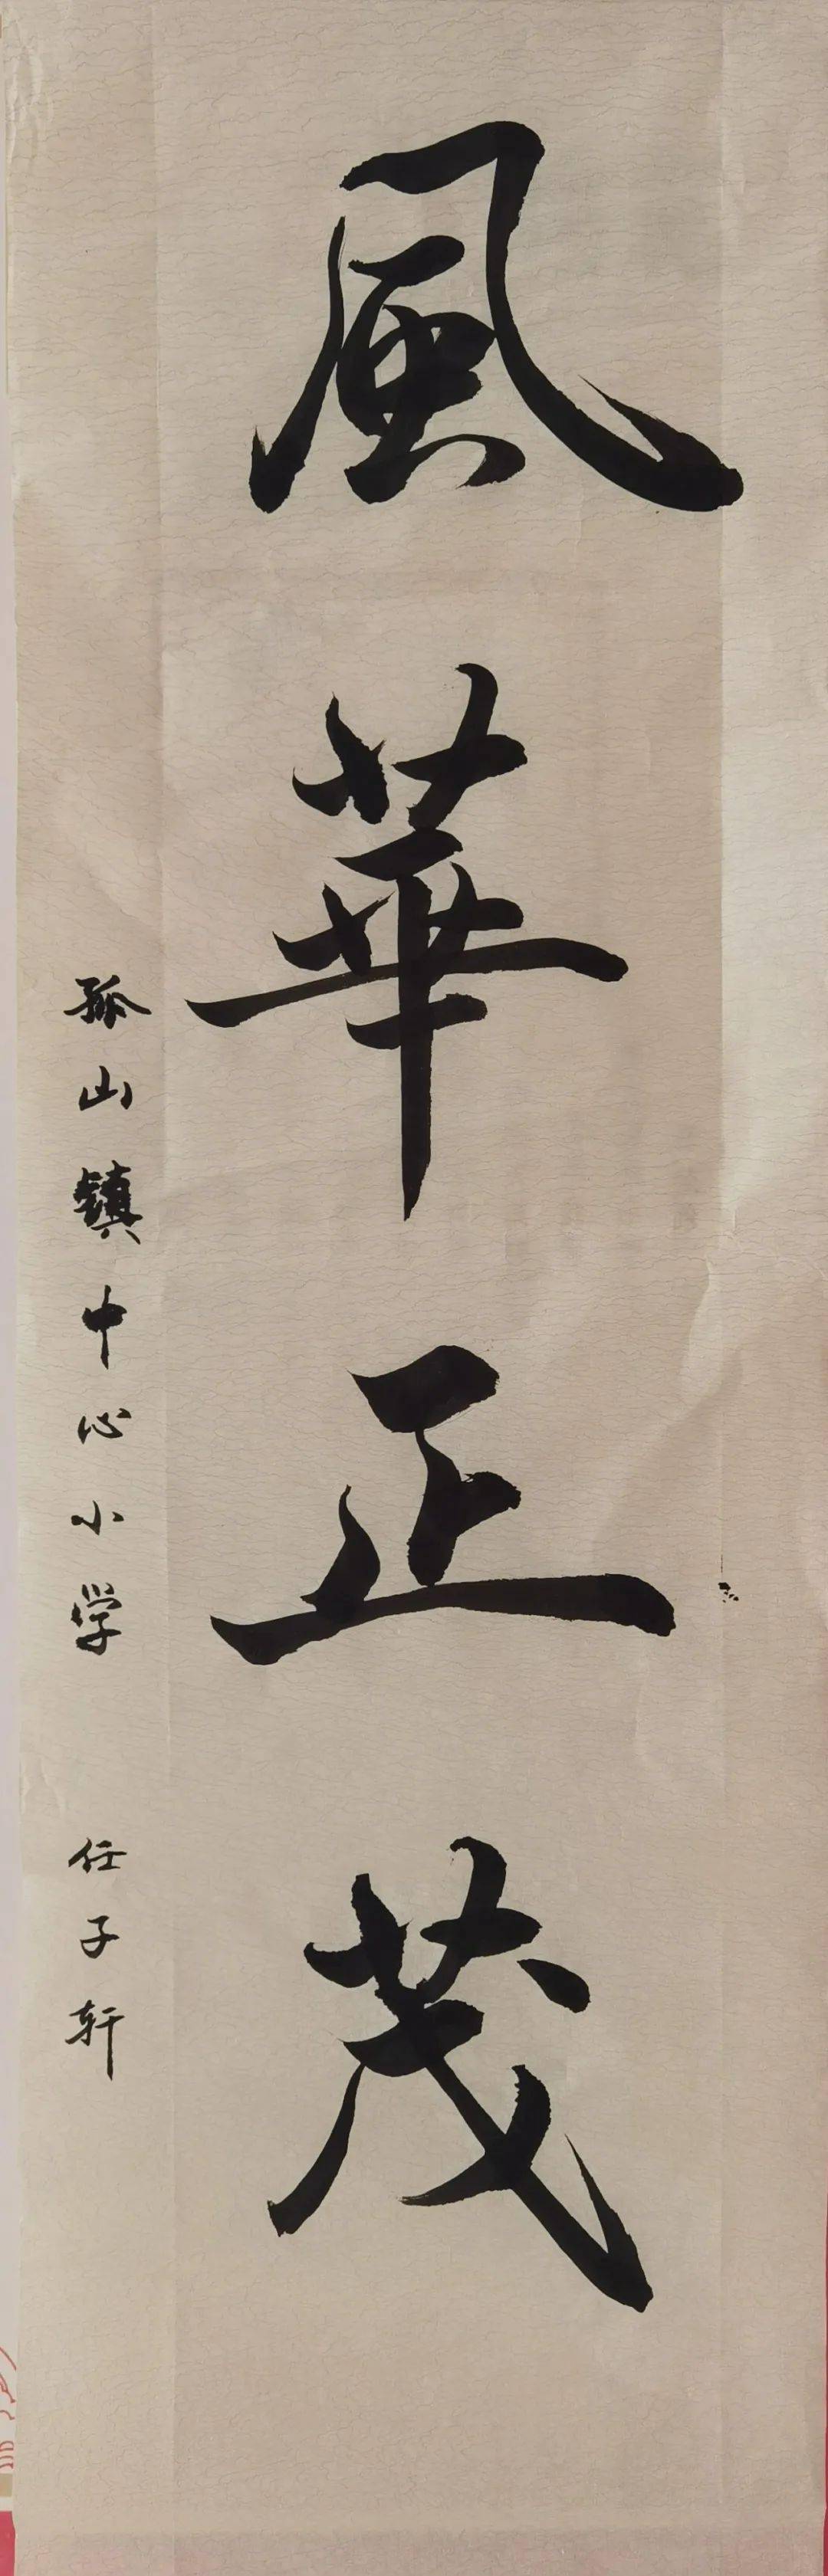 風華正茂
孤山镇中心小学 任子轩